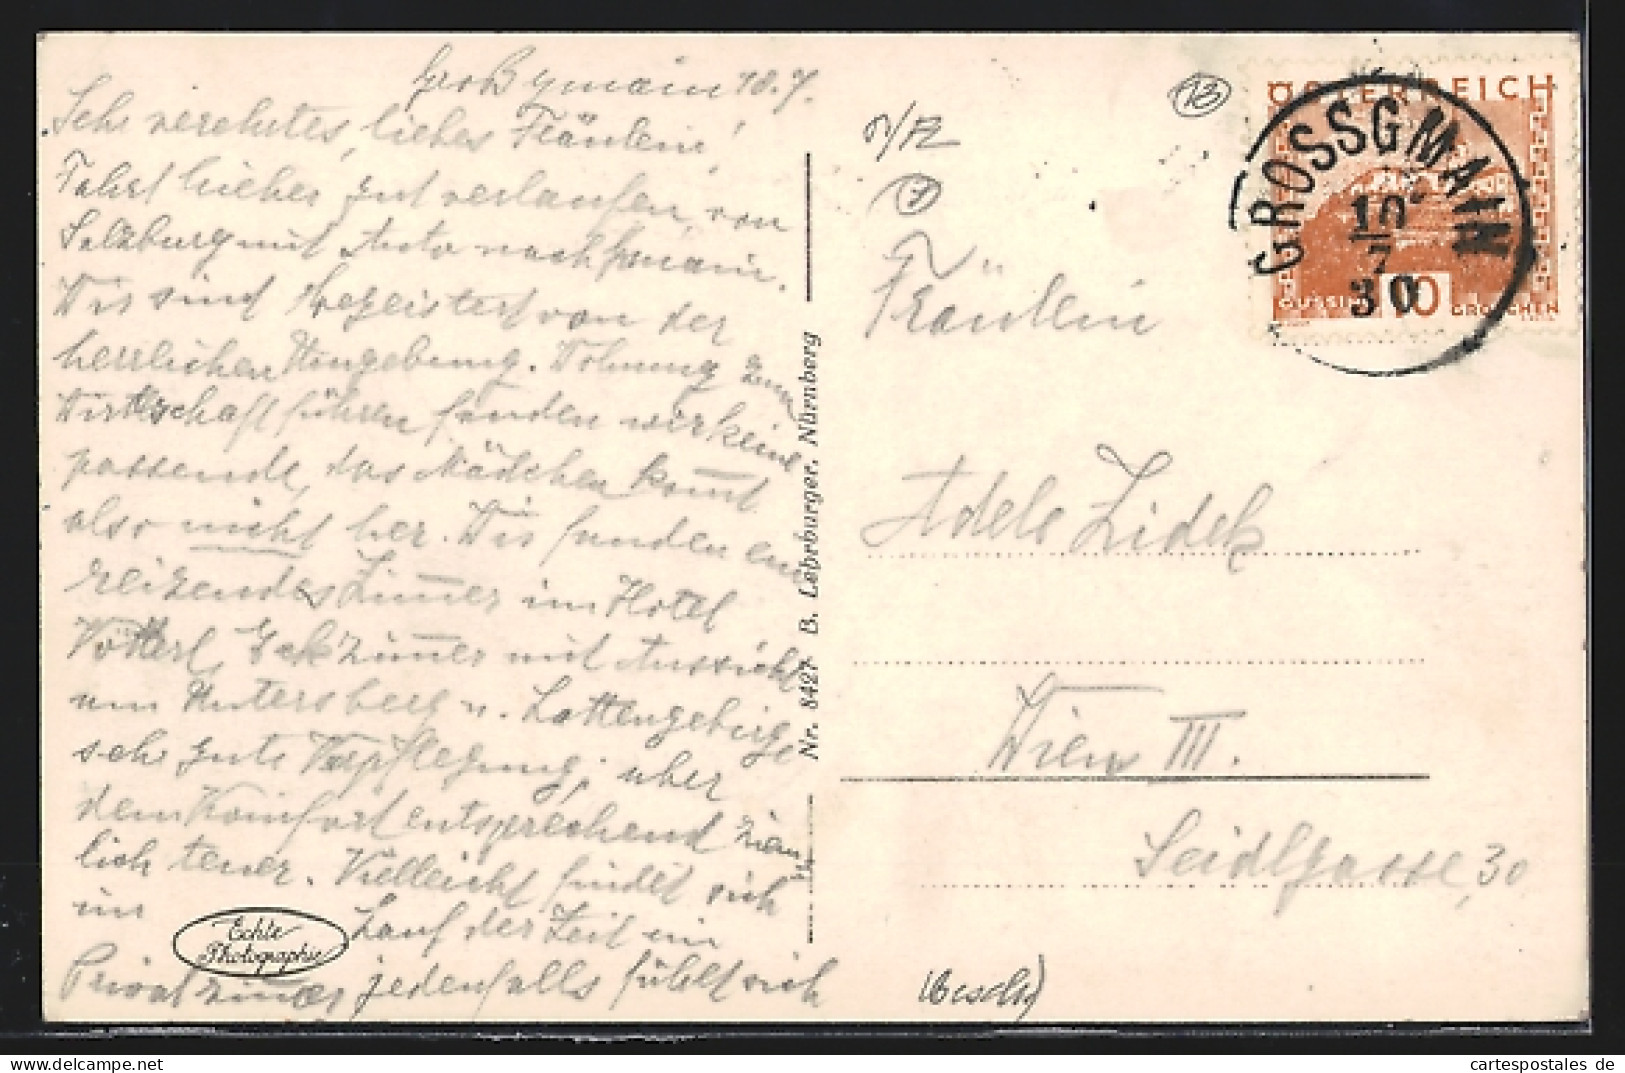 Großgmain 10.7.
Sehr verehrtes, liebes Fräulein!
Fahrt hieher gut verlaufen, von
Salzburg mit Auto nach Gmain.
Wir sind begeistert von der
herrlichen Umgebung. Wohnung zum
Wirtschaftführen fanden wir keine
passende, das Mädchen kommt
also nicht her. Wir fanden ein
reizendes Zimmer im Hotel
Vötterl, Eckzimmer mit Aussicht
um Untersberg u. Lattengebirge
sehr gute Verpflegung, aber
dem Komfort entsprechend ziem-
lich teuer. Vielleicht findet sich
im Lauf der Zeit ein
Privatzimmer jedenfalls fühlt sich
Echte
Photographie
Nr. 8427 B. Lehrburger, Nürnberg
13
7
ÖSTERREICH
GÜSSING 10 GROSCHEN
GROSSGMAIN
10
7
30
Fräulein
Adele Zidek
Wien III.
Seidlgasse, 30
(Besch)
cartespostales de
delcampe.net